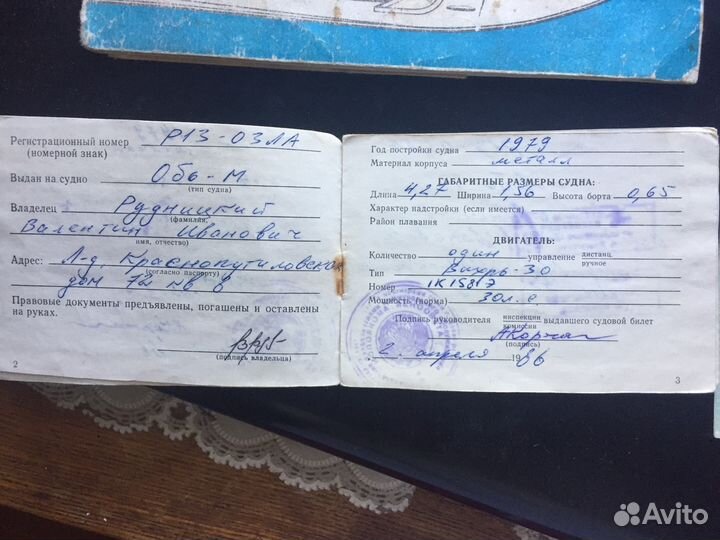 Регистрационный номер Р13-03ЛА
(номерной знак)
Выдан на судно Обь-М
(тип судна)
Владелец Рудницкий
(фамилия,
Валентин Иванович
имя, отчество)
Адрес: Л-д, Краснопутиловская
(согласно паспорту)
дом 72 кв 8
Правовые документы предъявлены, погашены и оставлены
на руках.
(подпись владельца)
2
Год постройки судна 1979
Материал корпуса металл
ГАБАРИТНЫЕ РАЗМЕРЫ СУДНА:
Длина 4,27 Ширина 1,56 Высота борта 0,65
Характер надстройки (если имеется)
Район плавания
ДВИГАТЕЛЬ:
Количество один управление дистанц.
ручное
Тип Вихрь-30
Номер
Мощность (норма) 30 л.с
Подпись руководителя инспекции выдавшего судовой билет
комиссии
(подпись)
2. апреля 1986
3
Avito